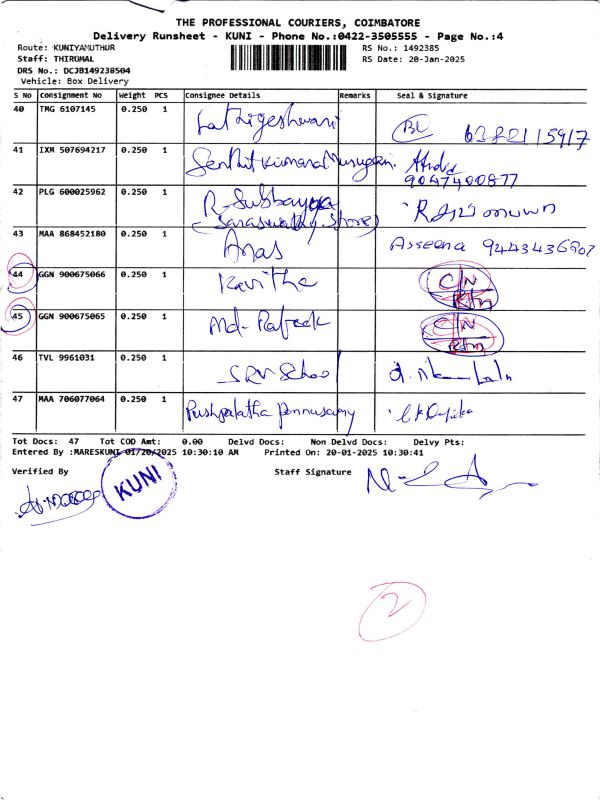 THE PROFESSIONAL COURIERS, COIMBATORE
Delivery Runsheet - KUNI - Phone No.:0422-3505555 - Page No.:4
Route: KUNIYAMUTHUR RS No.: 1492385
Staff: THIRUMAL RS Date: 20-Jan-2025
DRS No.: DCJB149238504
Vehicle: Box Delivery
S No Consignment No Weight PCS Consignee Details Remarks Seal & Signature
40 TMG 6107145 0.250 1
41 IXM 507694217 0.250 1 Senthil Kumaran Murugan
9047400877
42 PLG 600025962 0.250 1 R-Subbayya
(Saraswathy Stores)
43 MAA 868452180 0.250 1 Anas Asseena
44 GGN 900675066 0.250 1 Kavitha C/N
Rtn
45 GGN 900675065 0.250 1 Md-Rafeek C/N
Rtn
46 TVL 9961031 0.250 1 SRV School
47 MAA 706077064 0.250 1 Pushpalatha Ponnusamy
Tot Docs: 47 Tot COD Amt: 0.00 Delvd Docs: Non Delvd Docs: Delvy Pts:
Entered By :MARESKUNI 01/20/2025 10:30:10 AM Printed On: 20-01-2025 10:30:41
Verified By Staff Signature
KUNI
2